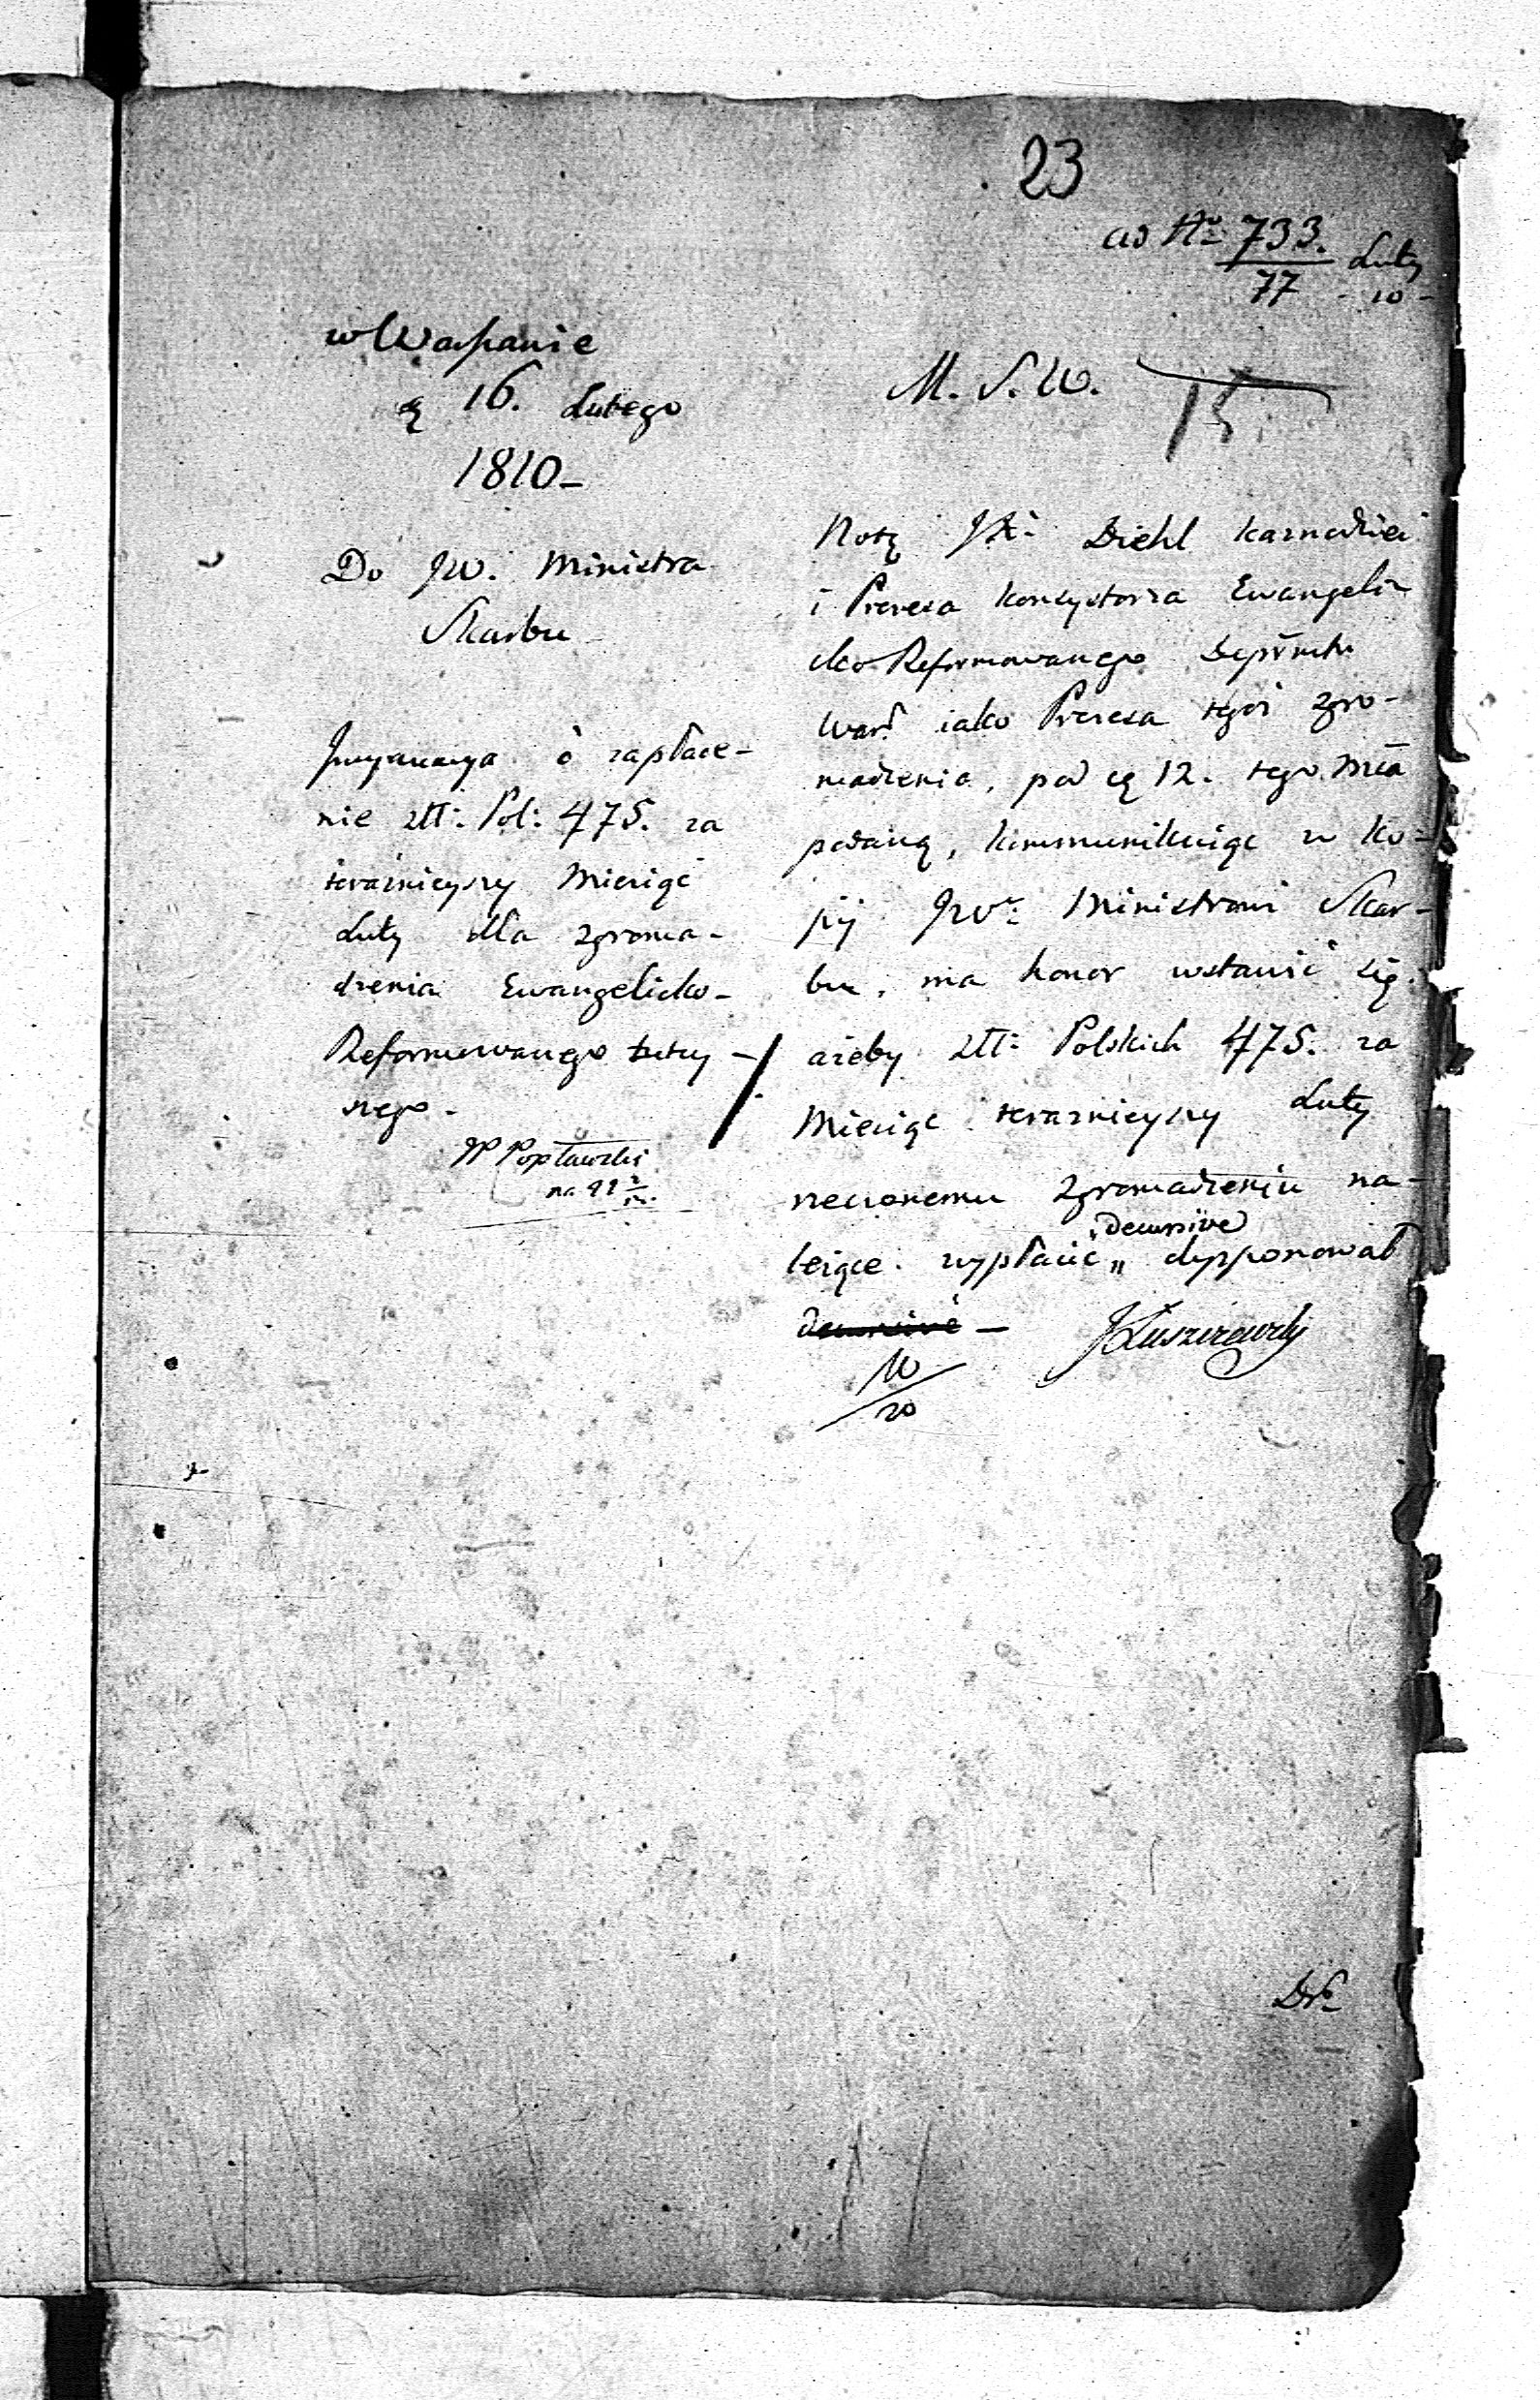 23
ad No 733. Luty
77 - 10 -
w Warszawie
d. 16. Lutego
1810 -
Do JW. Ministra
Skarbu
o zapłace-
nie złł: Pol: 475. za
teraźnieyszy Miesiąc
Luty dla zgroma-
dzenia Ewangelicko-
Reformowanego tutey-
szego -
JP Popławski
M. S. W.
Notę JX: Diehl kaznodziei
i Prezesa konsystorza Ewangeli-
cko Reformowanego Depṝtmtu
Warš. iako Prezesa tegoż zgro-
madzenia, pod dą 12. tego Mča
podaną, kommunikuiąc w Ko-
pij JWu: Ministrowi Skar-
bu, ma honor wstawić się
ażeby złł: Polskich 475. za
Miesiąc teraźnieyszy Luty
rzeczonemu Zgromadzeniu na-
leżące wypłacić „ decursive dysponował
decursive -
JŁuszczewski
W
20